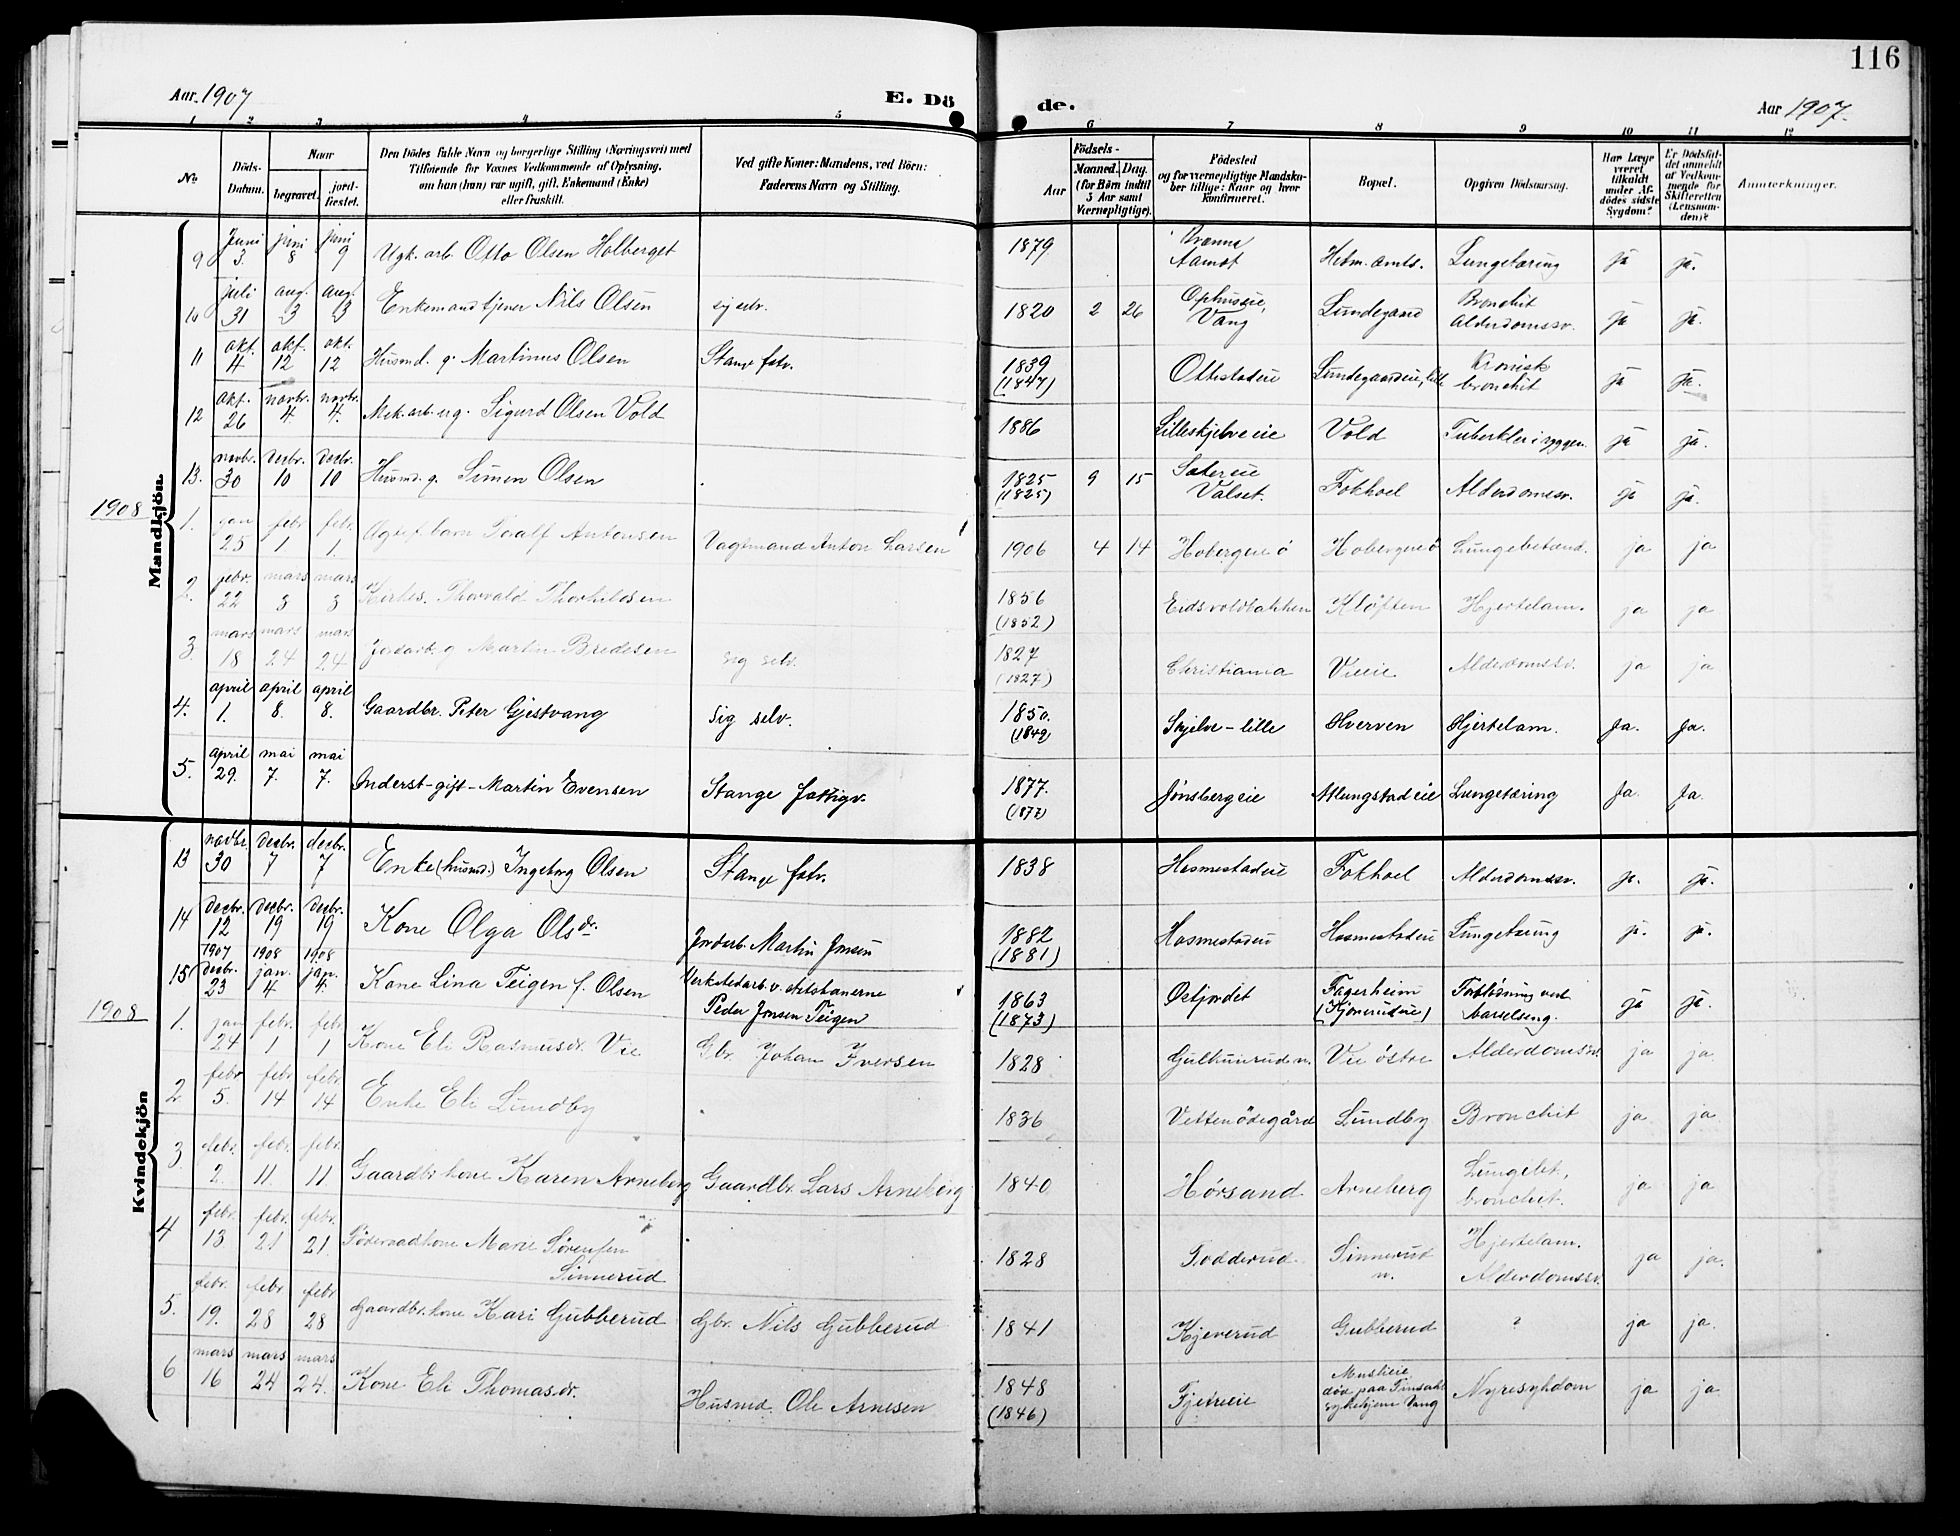 116
Aar 1907
E. Dö
de.
Aar 1907.
1 2 3 4 5 6 7 8 9 10 11 12
No
Döds-
Datum.
Naar
begravet.
jord-
fæstet.
Den Dödes fulde Navn og borgerlige Stilling (Næringsvei) med
Tilföiende for Voxnes Vedkommende af Oplysning,
om han (hun) var ugift, gift, Enkemand (Enke)
eller fraskilt.
Ved gifte Koner: Mandens, ved Börn:
Faderens Navn og Stilling.
Födsels-
Aar
Maaned.
Dag.
(for Börn indtil
5 Aar samt
Værnepligtige).
Födested
og for værnepligtige Mandska-
ber tillige: Naar og hvor
konfirmeret.
Bopæl.
Opgiven Dödsaarsag.
Har Læge
været
tilkaldt
under Af-
dödes sidste
Sygdom?
Er Dödsfal-
det anmeldt
af Vedkom-
mende for
Skifteretten
(Lensman-
den)?
Anmærkninger.
Mandkjön.
9 Juni 3. juni 8 juni 9 Ugk. arb. Otto Olsen Holberget 1879 Aamot Hedm. amts. Lungetæring ja ja.
10 juli 31 aug. 3 aug. 3 Enkemand tjener Nils Olsen sj. selv. 1820 2 26 Ophuseie, Vang Lundegaard Bronchit Alderdomssv. ja ja.
11 okt. 4 okt. 12 okt. 12 Husmd. g. Martinus Olsen Stange fatv. 1839 (1847) Ottestadeie Lundegaardeie, lille Kronisk bronchit ja ja.
12 okt. 26 novbr. 4. novbr. 4. Mek. arb. ug. Sigurd Olsen Vold 1886 Lilleskjelve eie Vold Tuberkler i ryggen. ja ja.
13. novbr. 30 decbr. 10 decbr. 10 Husmd. g. Simen Olsen 1825 (1825) 9 15 Sætereie Valset. Fokhoel Alderdomssv. ja ja.
1908
1. jan 25 febr 1 febr. 1. Agtef. barn Toralf Antonsen Vagtmand Anton Larsen 1906 4 14 Hobergeie ö Hobergeie ö Lungebetænd. ja ja
2. febr. 22 mars 3 mars 3 Thorvald Thorkildsen 1856 (1852) Eidsvoldbakken Kløften Hjertelam. ja ja
3. mars 18 mars 24 mars 24 Jordarb. g Martin Bredesen sig selv. 1827 (1827) Christiania Vieeie Alderdomssv. ja ja
4. april 1. april 8. april 8. Gaardbr. Peter Gjestvang Sig selv. 1850. (1849) Skjelve-lille Hverven Hjertelam. Ja. Ja.
5. april 29. mai 7. mai 7. Inderst-gift-Martin Evensen Stange fattigv. 1877. (1877) Jønsbergeie Atlungstadeie Lungetæring Ja. Ja.
Kvindekjön
13 novbr. 30 decbr. 7 decbr. 7 Enke (husmd.) Ingeborg Olsen Stange fatv. 1838 Hesmestadeie Fokhoel Alderdomssv. ja. ja.
14 decbr. 12 decbr. 19 decbr. 19 Kone Olga Olsdr. Jordarb. Martin Jensen 1882 (1881) Hosmestadeie Hesmestadeie Lungetæring ja. ja.
15 1907 decbr. 23 1908 jan. 4 1908 jan. 4. Kone Lina Teigen f. Olsen Verkstedarb. v. statsbanerne Peder Jensen Teigen 1863 (1873) Østjordet Fagerheim (Kjonerudeie) Forbløsning ved Barselseng. ja ja.
1908
1. jan 24 febr. 1 febr 1 Kone Eli Rasmusdr. Vie Gbr. Johan Iversen 1828 Gulhuinrud n. Vie östre Alderdomssv. ja ja.
2 febr 5. febr 14 febr 14 Enke Eli Lundby 1836 Vettenödegård Lundby Bronchit ja ja
3 febr. 2. febr. 11. febr. 11 Gaardbr. kone Karen Arneberg Gaardbr. Lars Arneberg 1840 Hørsand Arneberg Lungebet, bronchit. ja ja
4 febr. 13 febr. 21 febr. 21. Föderaadkone Marie Sørensen Sinnerud 1828 Todderud. Sinnerud n. Hjertelam. Alderdomssv. ja ja.
5. febr. 19. febr 28 febr 28 Gaardbr. kone Kari Gubberud Gbr. Nils Gubberud 1841 Kjeverud Gubberud ? ja ja.
6 mars 16 mars 24 mars 24. Kone Eli Thomasdr. Husmd. Ole Arnesen 1848 (1846) Fjetreeie død paa sykehjem Vang Nyresykdom ja ja